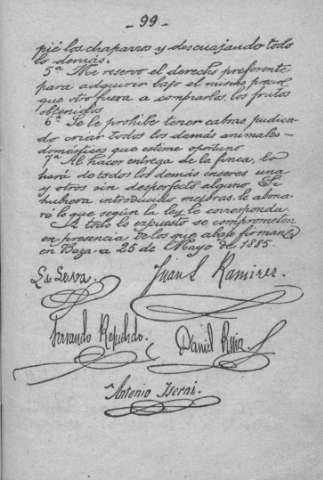 - 99 -
pié los chaparros y descuajando todo
lo demás.
5ª Me reservo el derecho preferente
para adquirir bajo el mismo precio
que otro fuera a comprarlos, los frutos
obtenidos
6ª Se le prohibe tener cabras, pudien
do criar todos los demás animales
domésticos que estime oportuno
7ª Al hacer entrega de la finca, lo
hará de todos los demás enseres una
y otros sin desperfecto alguno. Si
hubiera introducido mejoras, le abona
ré lo que según la ley le corresponda.
A todo lo expuesto se comprometen
en presencia de los que abajo firman
en Baza a 25 de Mayo de 1885.
Juan S. Ramirez.
Fernando Repullado.
Daniel Ruiz
Antonio